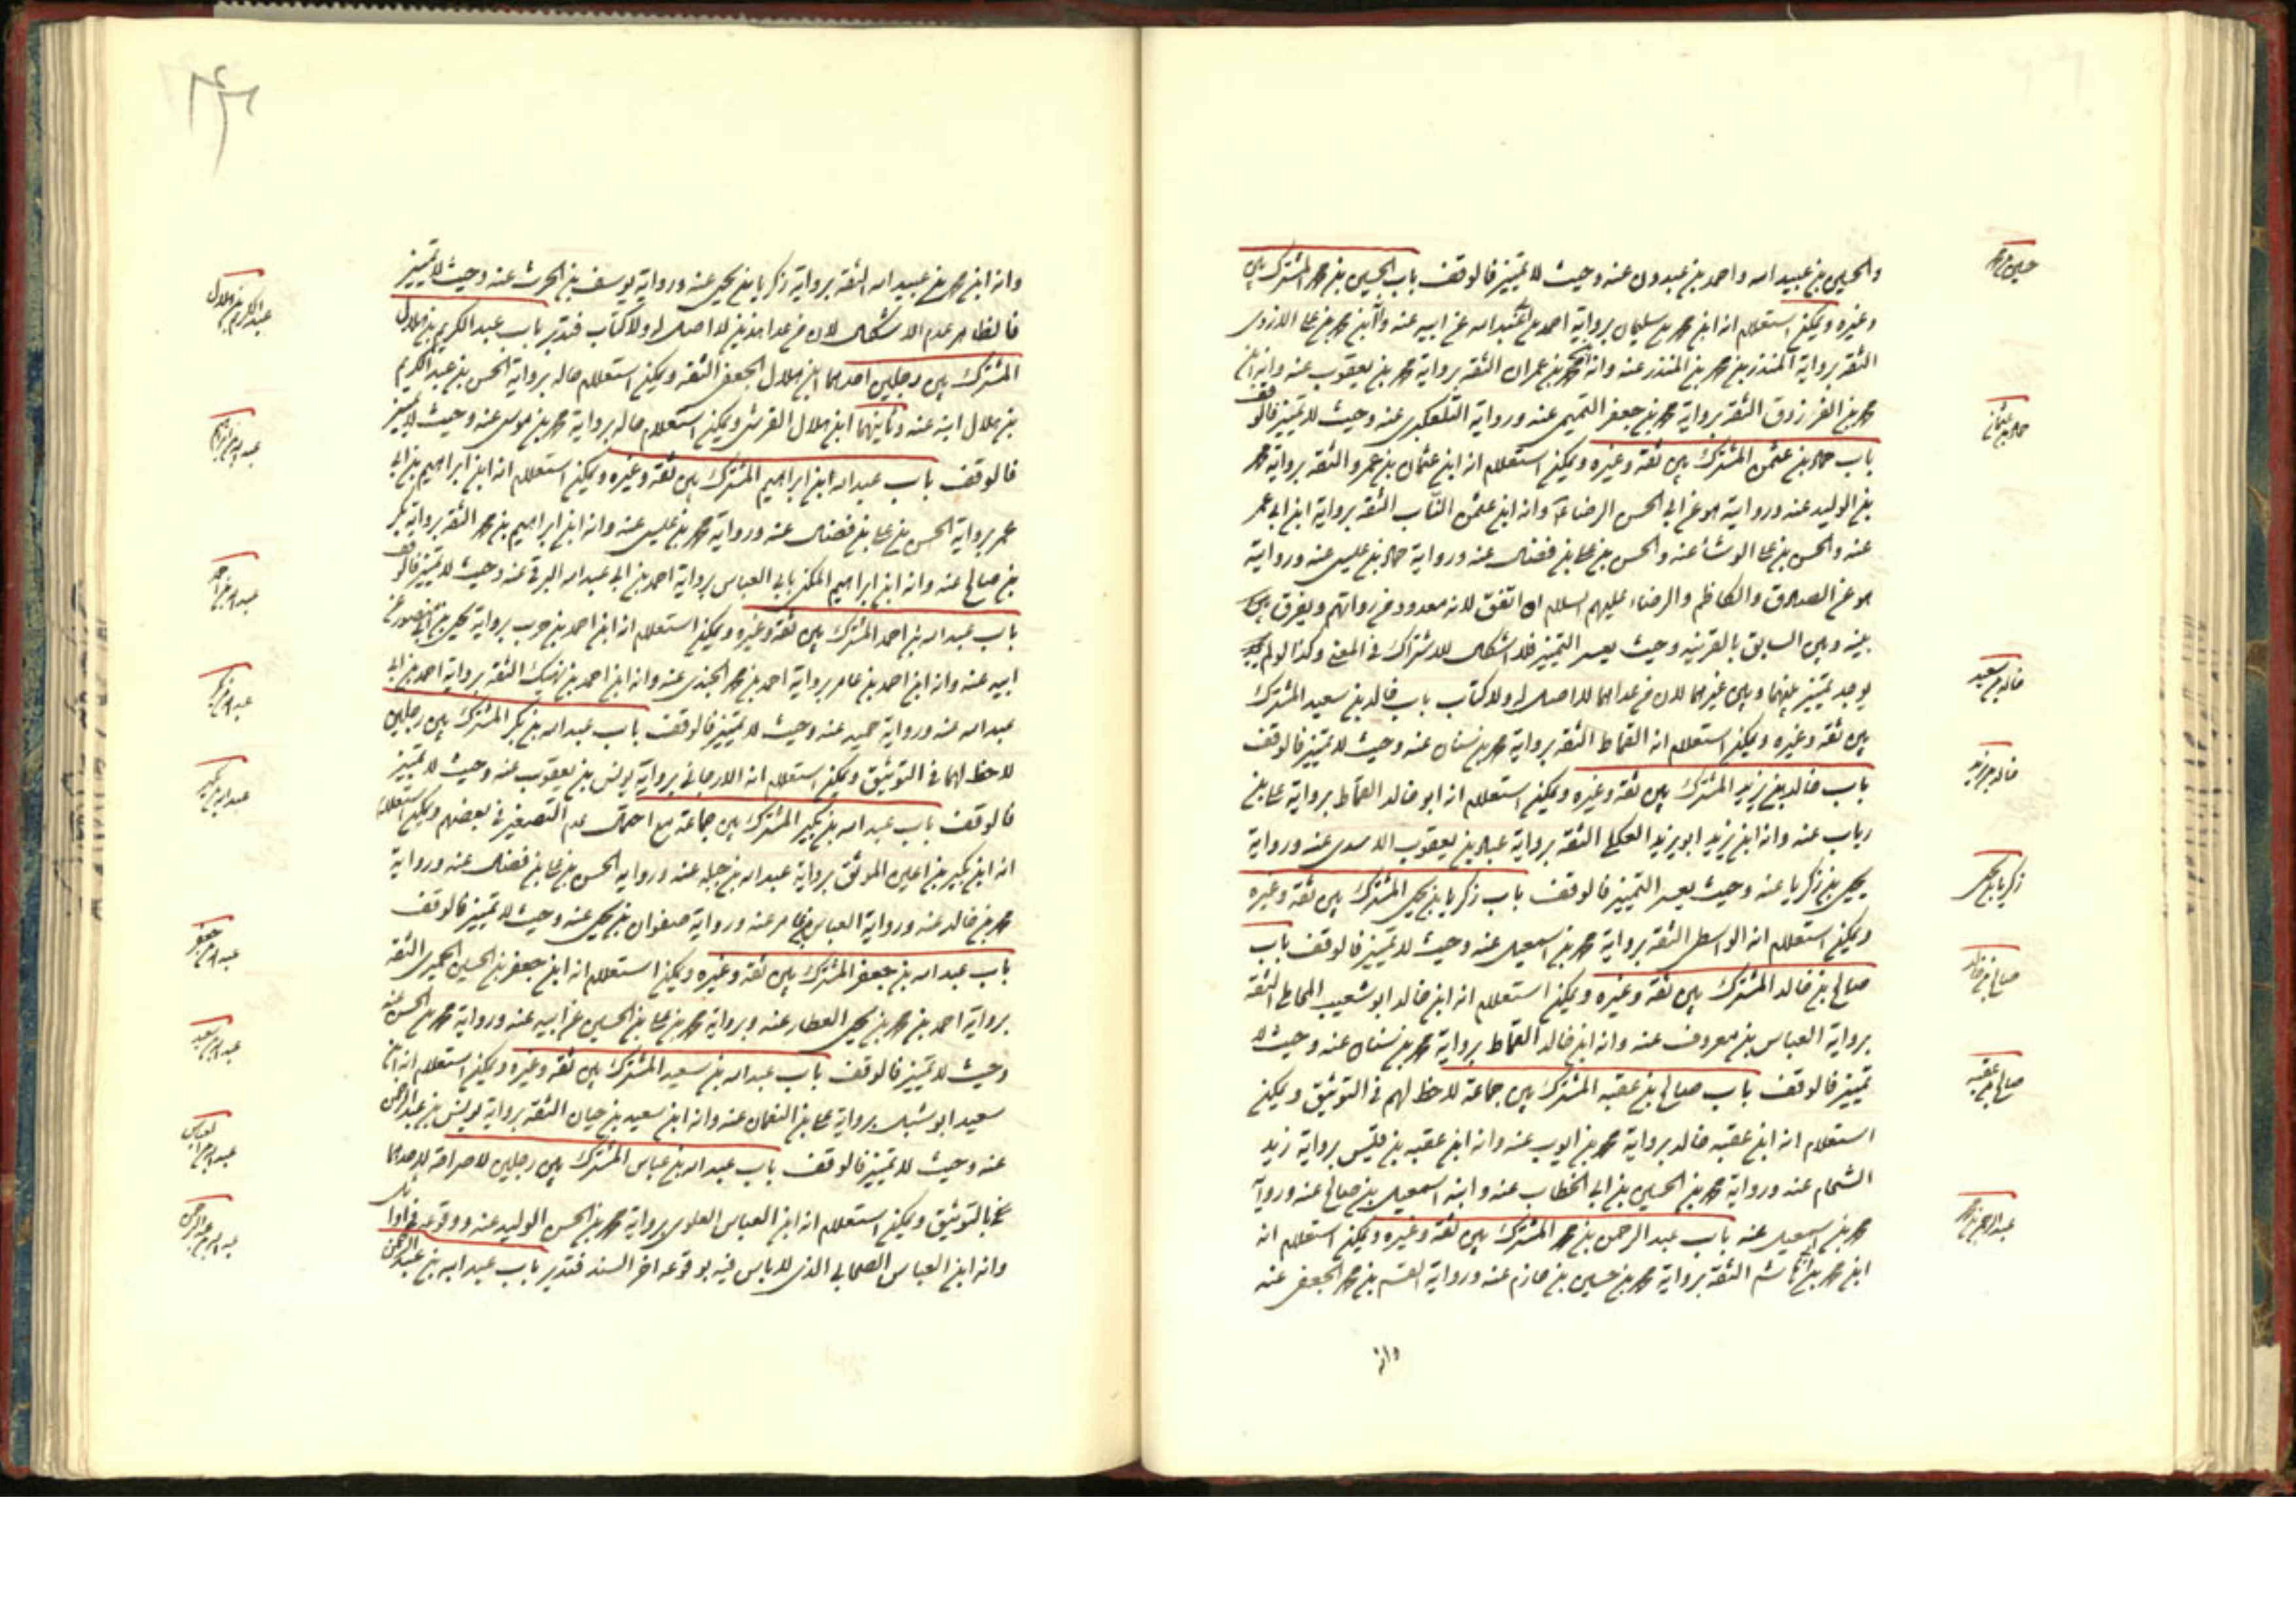 والحسين بن عبيد الله واحمد بن عبدون عنه وحيث لا تميز فالوقف باب الحسين بن محمد المشترك بين
وغيره ويمكن استعلام انه ابن محمد بن سليمان برواية احمد بن عبد الله عن ابيه عنه وانه ابن محمد بن علي الازدي
الثقة برواية المنذر بن محمد بن المنذر عنه وانه بن عمران الثقة برواية محمد بن يعقوب عنه وانه ابن
محمد بن الفرزدق الثقة برواية محمد بن جعفر التميمي عنه ورواية التلعكبري عنه وحيث لا تميز فالوقف
باب حماد بن عثمن المشترك بين ثقة وغيره ويمكن استعلام انه ابن عثمان بن عمرو الثقة برواية محمد
بن الوليد عنه وروايته هو عن ابي الحسن الرضا ع وانه ابن عثمن الناب الثقة برواية ابن ابي عمر
عنه والحسن بن علي الوشاء عنه والحسن بن علي بن فضال عنه ورواية حماد بن عيسى عنه وروايته
هو عن الصادق والكاظم والرضا عليهم السلام ان اتفق لانه معدود في رواتهم ويفرق بين
بينه وبين السابق بالقرينه وحيث يعسر التميز فلا اشكال للاشتراك في المعنى وكذا لو لم
يوجد تميز بينهما وبين غيرهما لان من عداهما لا اصل له ولا كتاب باب خالد بن سعيد المشترك
بين ثقة وغيره ويمكن استعلام انه القماط الثقة برواية محمد بن سنان عنه وحيث لا تميز فالوقف
باب خالد بن زيد المشترك بين ثقة وغيره ويمكن استعلام انه ابو خالد القماط برواية علي بن
رباب عنه وانه ابن زيد ابو يزيد العكلي الثقة برواية عباد بن يعقوب الاسدي عنه ورواية
يحيى بن زكريا عنه وحيث يعسر التميز فالوقف باب زكريا بن يحيى المشترك بين ثقة وغيره
ويمكن استعلام انه الواسطي الثقة برواية محمد بن اسمعيل عنه وحيث لا تميز فالوقف باب
صالح بن خالد المشترك بين ثقة وغيره ويمكن استعلام انه ابن خالد ابو شعيب المحاملي الثقة
برواية العباس بن معروف عنه وانه ابن خالد القماط برواية محمد بن سنان عنه وحيث لا
تميز فالوقف باب صالح بن عقبه المشترك بين جماعة لا حظ لهم في التوثيق ويمكن
استعلام انه ابن عقبه خالد برواية محمد بن ايوب عنه وانه ابن عقبه بن قيس برواية زيد
الشحام عنه ورواية محمد بن الحسين بن ابي الخطاب عنه وابنه اسمعيل بن صالح عنه ورواية
محمد بن اسمعيل عنه باب عبد الرحمن بن محمد المشترك بين ثقة وغيره ويمكن استعلام انه
ابن محمد بن ابي هاشم الثقة برواية محمد بن حسين بن حازم عنه ورواية القسم بن محمد الجعفي عنه
وانه
حسين بن محمد
حماد بن عثمان
خالد بن سعيد
خالد بن زيد
زكريا بن يحيى
صالح بن خالد
صالح بن عقبه
عبد الرحمن بن محمد
وانه ابن محمد بن عبيد الله الثقة برواية زكريا بن يحيى عنه ورواية يوسف بن الحرث عنه وحيث لا تميز
فالظاهر عدم الاشكال لان من عدا هذين لا اصل له ولا كتاب فتدبر باب عبد الكريم بن هلال
المشترك بين رجلين احدهما ابن هلال الجعفي الثقة ويمكن استعلام حاله برواية الحسن بن عبد الكريم
بن هلال ابنه عنه وثانيهما ابن هلال القرشي ويمكن استعلام حاله برواية محمد بن موسى عنه وحيث لا تميز
فالوقف باب عبد الله ابن ابراهيم المشترك بين ثقة وغيره ويمكن استعلام انه ابن ابراهيم بن ابي
عمر برواية الحسن بن علي بن فضال عنه ورواية محمد بن عيسى عنه وانه ابن ابراهيم بن محمد الثقة برواية بكر
بن صالح عنه وانه ابن ابراهيم المكنى بابي العباس برواية احمد بن ابي عبد الله البرقي عنه وحيث لا تميز فالوقف
باب عبد الله بن احمد المشترك بين ثقة وغيره ويمكن استعلام انه ابن احمد بن حرب برواية يحيى بن منصور عن
ابيه عنه وانه ابن احمد بن عامر برواية احمد بن محمد الجندي عنه وانه ابن احمد بن نهيك الثقة برواية احمد بن ابي
عبد الله عنه ورواية حميد عنه وحيث لا تميز فالوقف باب عبد الله بن بكر المشترك بين رجلين
لا حظ لهما في التوثيق ويمكن استعلام انه الارجاني برواية يونس بن يعقوب عنه وحيث لا تميز
فالوقف باب عبد الله بن بكير المشترك بين جماعة مع احتمال عدم التصغير في بعضهم ويمكن استعلام
انه ابن بكير بن اعين الموثق برواية عبد الله بن جبله عنه ورواية الحسن بن علي بن فضال عنه ورواية
محمد بن خالد عنه ورواية العباس بن عامر عنه ورواية صفوان بن يحيى عنه وحيث لا تميز فالوقف
باب عبد الله بن جعفر المشترك بين ثقة وغيره ويمكن استعلام انه ابن جعفر بن الحسين الحميري الثقة
برواية احمد بن محمد بن يحيى العطار عنه وبرواية محمد بن علي بن الحسين عن ابيه عنه ورواية محمد بن الحسن عنه
وحيث لا تميز فالوقف باب عبد الله بن سعيد المشترك بين ثقة وغيره ويمكن استعلام انه ابن
سعيد ابو شبل برواية علي بن النعمان عنه وانه ابن سعيد بن حيان الثقة برواية يونس بن عبد الرحمن
عنه وحيث لا تميز فالوقف باب عبد الله بن عباس المشترك بين رجلين لا صراحة لاحدهما
بالتوثيق ويمكن استعلام انه ابن العباس العلوي برواية محمد بن الحسن الوليد عنه ووقوعه في اوا
وانه ابن العباس الصحابي الذي لا باس فيه بوقوعه اخر السند فتدبر باب عبد الله بن عبد الرحمن
عبد الكريم بن هلال
عبد الله بن ابراهيم
عبد الله بن احمد
عبد الله بن بكر
عبد الله بن بكير
عبد الله بن جعفر
عبد الله بن سعيد
عبد الله بن العباس
عبد الله بن عبد الرحمن